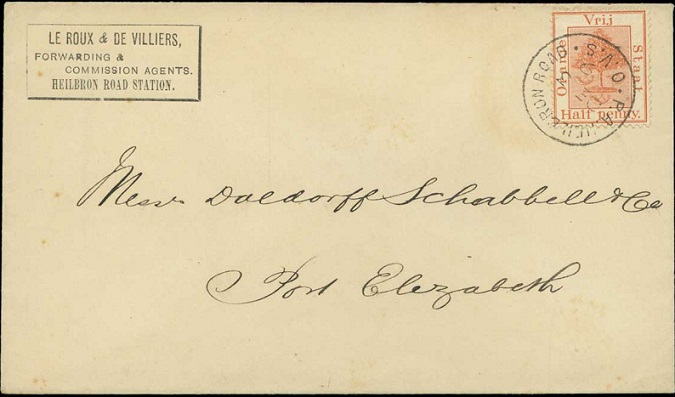 LE ROUX & DE VILLIERS,
FORWARDING &
COMMISSION AGENTS.
HEILBRON ROAD STATION.
Vrij
Oranje
Staat
Half penny.
P.A. HEILBRON ROAD. O.V.S.
Messrs Daldorff Schabbell & Co
Port Elizabeth